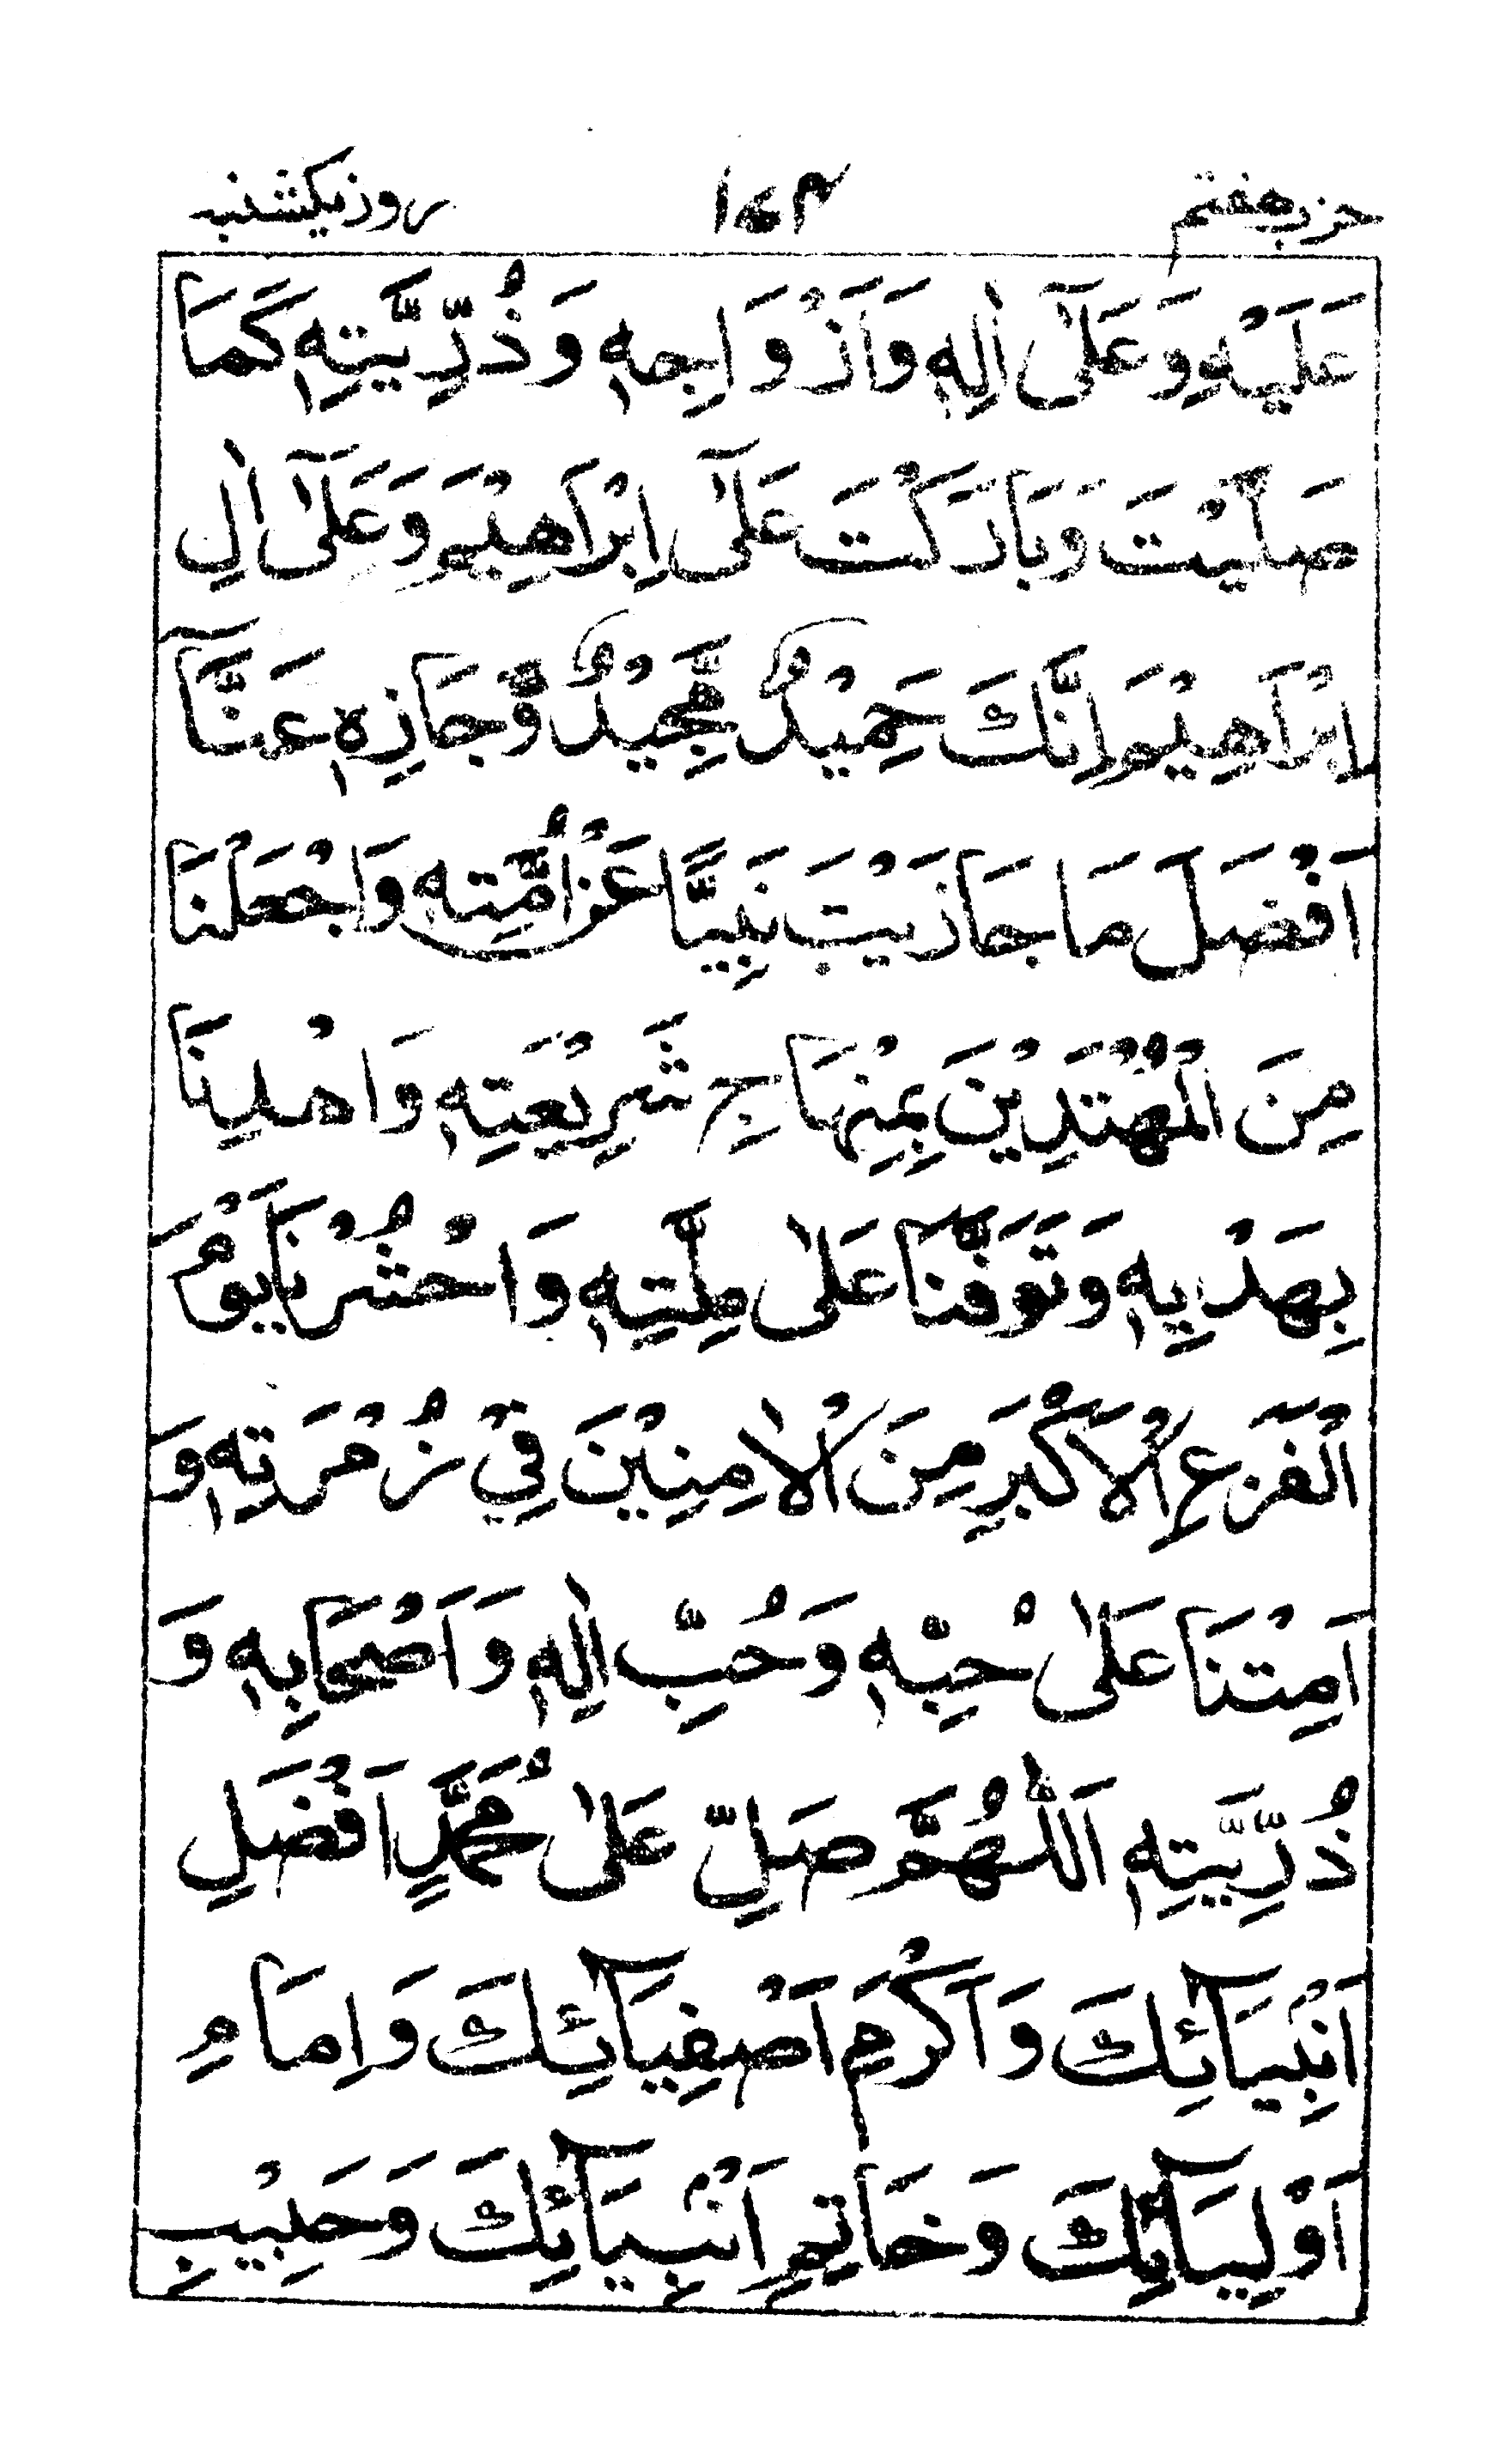 حزب هفتم ۱۶۴ روز یکشنبہ
عَلَيْهِ وَعَلٰٓى اٰلِهٖ وَاَزْوَاجِهٖ وَذُرِّيَّتِهٖ كَمَا
صَلَّيْتَ وَبَارَكْتَ عَلٰٓى اِبْرَاهِيْمَ وَعَلٰٓى اٰلِ
اِبْرَاهِيْمَ اِنَّكَ حَمِيْدٌ مَّجِيْدٌ وَّجَازِهٖ عَنَّآ
اَفْضَلَ مَا جَازَيْتَ نَبِيًّا عَنْ اُمَّتِهٖ وَاجْعَلْنَا
مِنَ الْمُهْتَدِيْنَ بِمِنْهَاجِ شَرِيْعَتِهٖ وَاهْدِنَا
بِهَدْيِهٖ وَتَوَفَّنَا عَلٰى مِلَّتِهٖ وَاحْشُرْنَا يَوْمَ
الْفَزَعِ الْاَكْبَرِ مِنَ الْاٰمِنِيْنَ فِيْ زُمْرَتِهٖ وَ
اَمِتْنَا عَلٰى حُبِّهٖ وَحُبِّ اٰلِهٖ وَاَصْحَابِهٖ وَ
ذُرِّيَّتِهٖ اَللّٰهُمَّ صَلِّ عَلٰى مُحَمَّدٍ اَفْضَلِ
اَنْبِيَآئِكَ وَاَكْرَمِ اَصْفِيَآئِكَ وَاِمَامِ
اَوْلِيَآئِكَ وَخَاتِمِ اَنْبِيَآئِكَ وَحَبِيْبِ